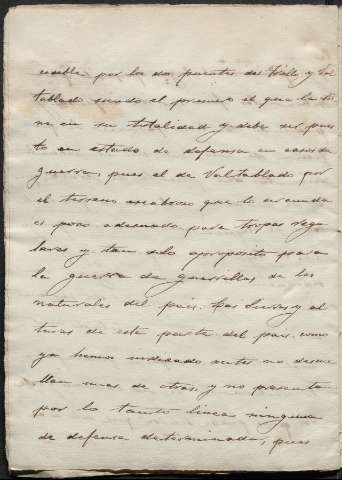 cesible por los dos puentes del Valle y Val
tablado siendo el primero el que la tie
ne en su totalidad y debe ser pues
to en estado de defensa en caso de
guerra, pues el de Valtablado por
el terreno escabroso que lo circunda
es poco adecuado para tropas regu
lares y tan solo aproposito para
la guerra de guerrillas de los
naturales del pais. Las lomas y al
turas de esta parte del pais, como
ya hemos indicado antes no descue
llan unas de otras, y no presentan
por lo tanto linea ninguna
de defensa determinada; pues